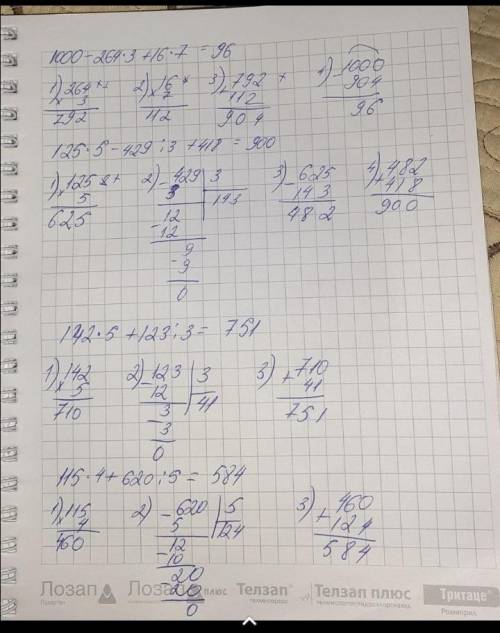 1000-264·3+16·7=96
1) 264 × 3 792 2) 16 × 7 112 3) 792 + 112 904 4) 1000 - 904 96
125·5-429:3+418=900
1) 125 × 5 625 2) 429 | 3 143 3) 625 - 143 482 4) 482 + 418 900
3
-12
12
9
-9
0
142·5+123:3=751
1) 142 × 5 710 2) -123 | 3 41 3) 710 + 41 751
12
3
-3
0
115·4+620:5=584
1) 115 × 4 460 2) -620 | 5 124 3) 460 + 124 584
5
-12
10
-20
20
0
Лозап Лозап плюс Телзап® Телзап плюс Тритаце®